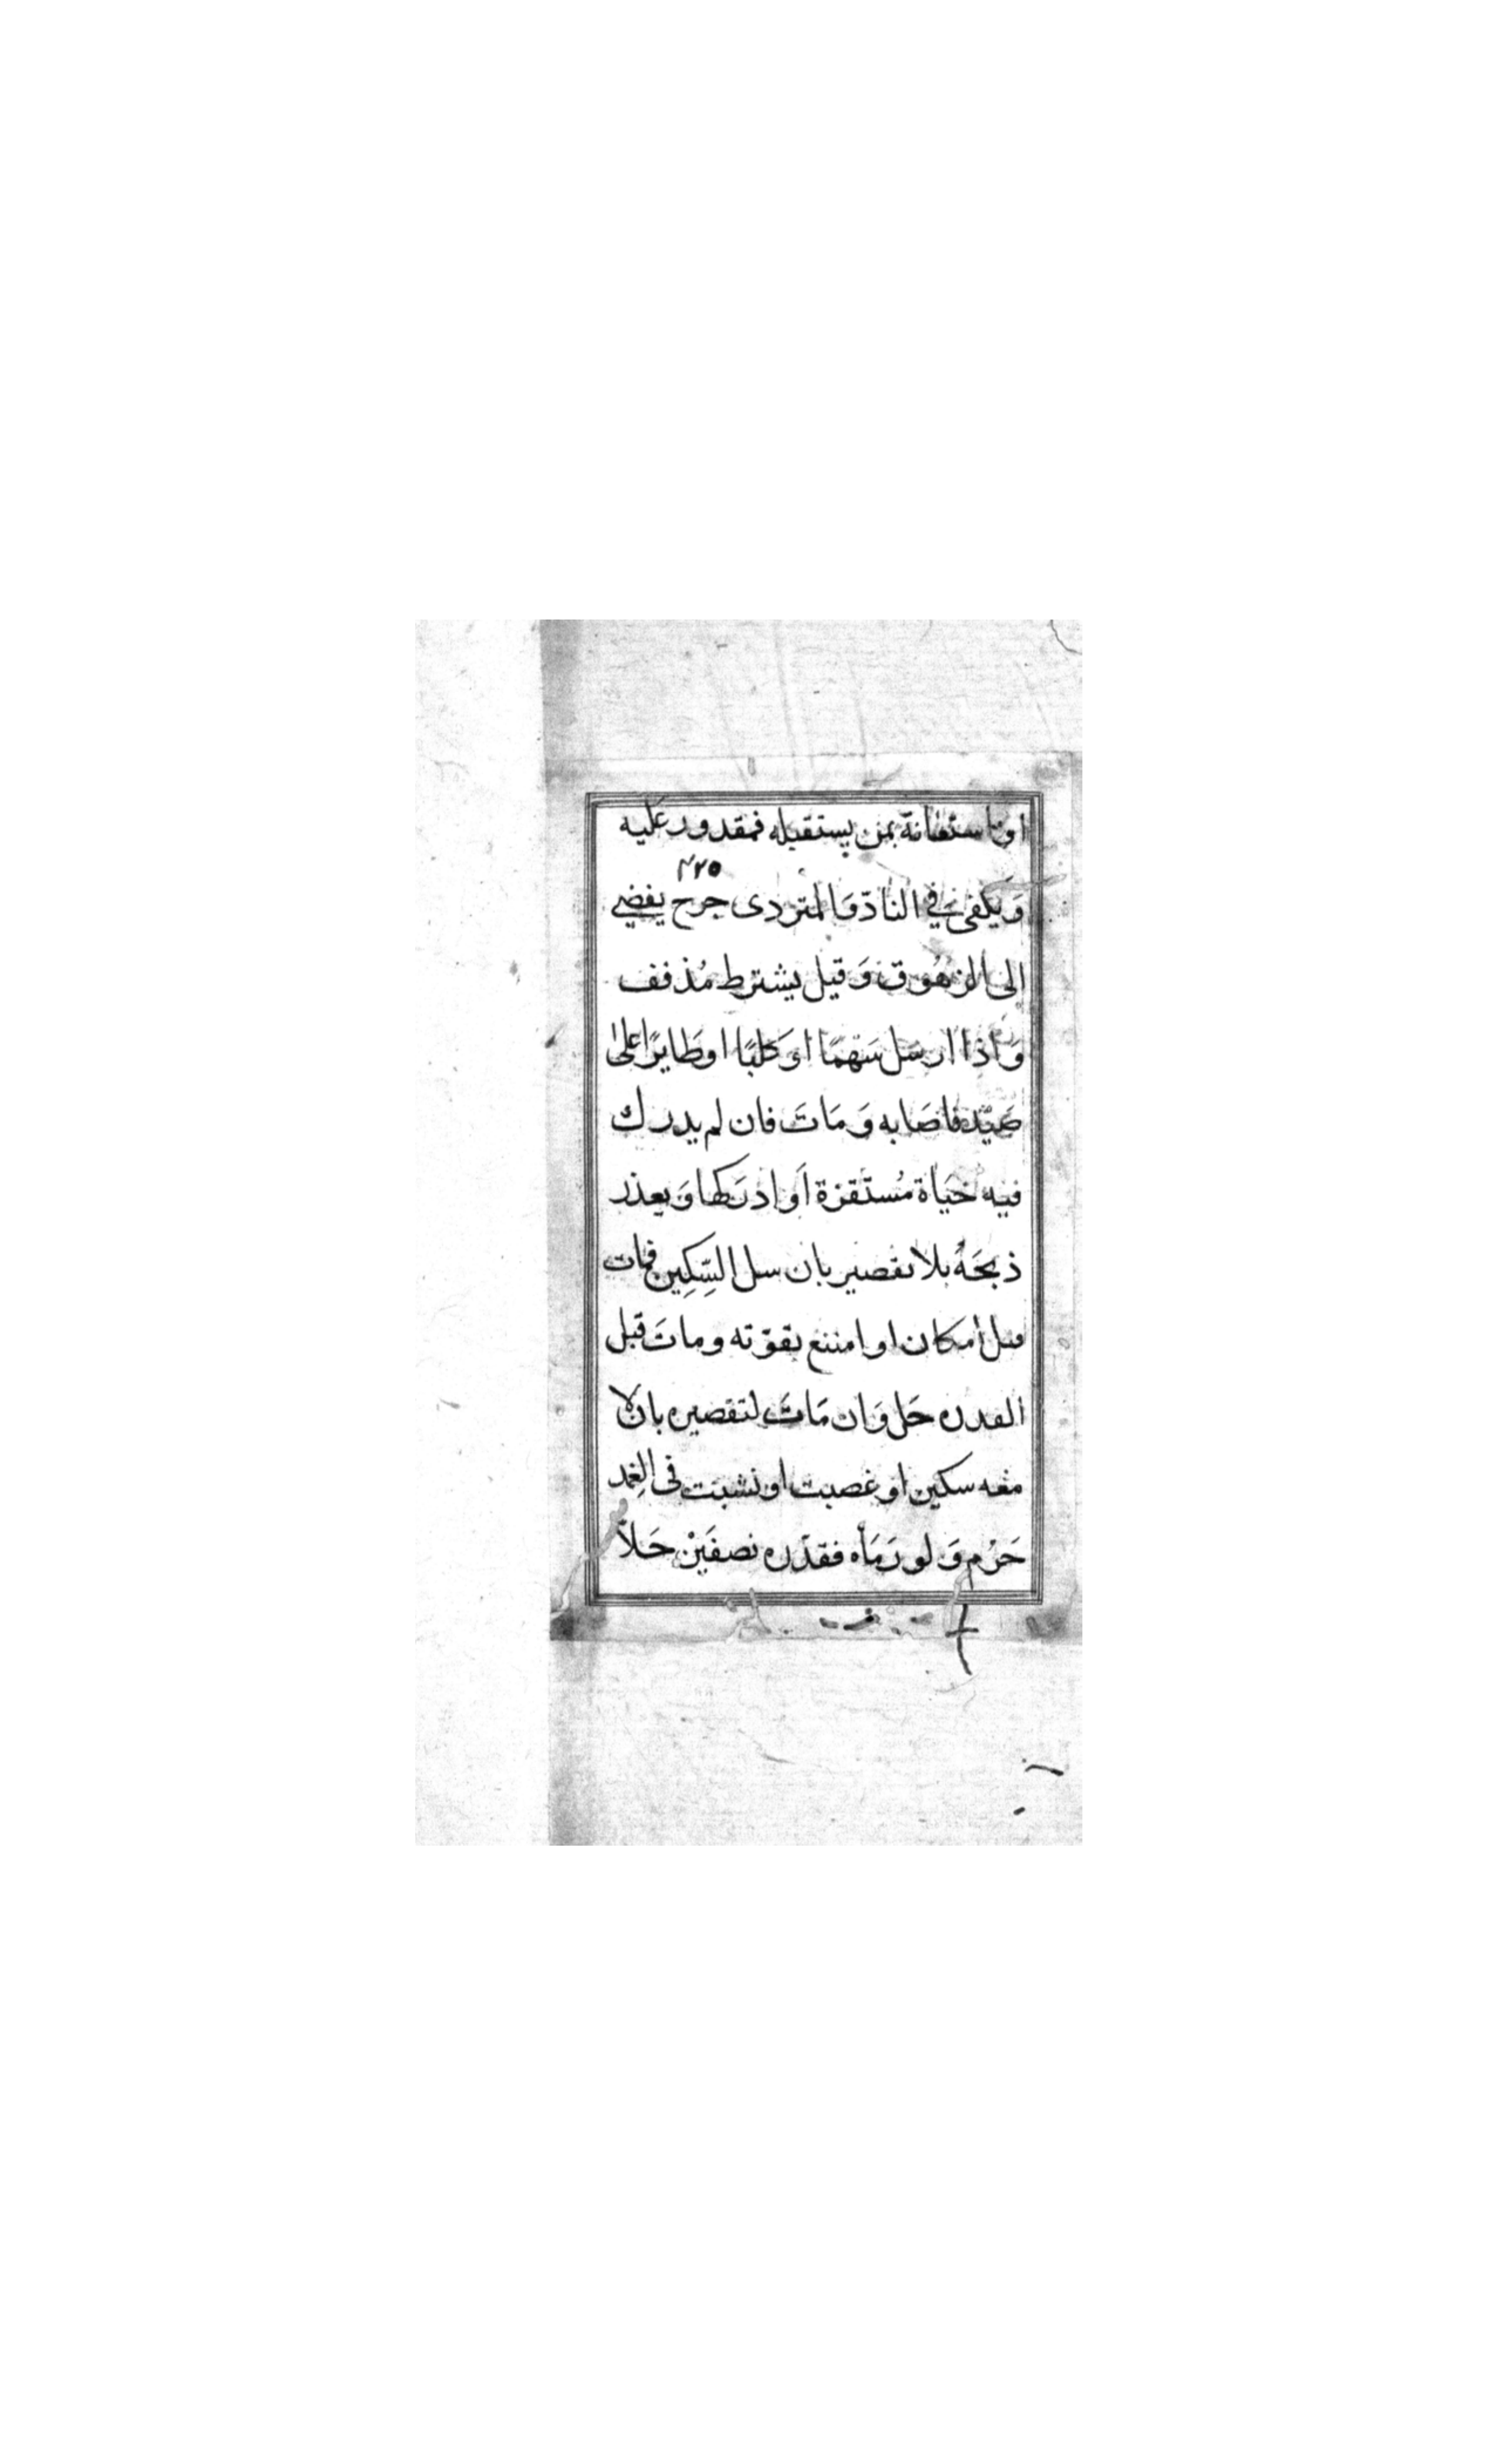 او استعانة بمن يستقبله فمقدور عليه
٤٢٥
وَيكفى في النادّ وَالمتردى جرح يفضي
الى الزهُوق وَقيل يشترط مُذفف
وَاذا ارسَل سَهمًا اوكلبًا اوطَايرًا على
صَيْد فاصَابه وَمَاتَ فان لم يدرك
فيه حَيَاة مُستَقرة اَو ادرَكها وَىعذر
ذبحَهُ بلا ىقصير بان سل السِّكِين فمات
ٯىل امكان او امتنع بقوّته وماتَ قبل
الڡدره حَل وَان مَاتَ لتقصيره بان لا
معه سكين او غصبت او نشبت فى الغِمد
حَرُم وَلو رَمَاه فقدّره نصفَيْن حَلاّ